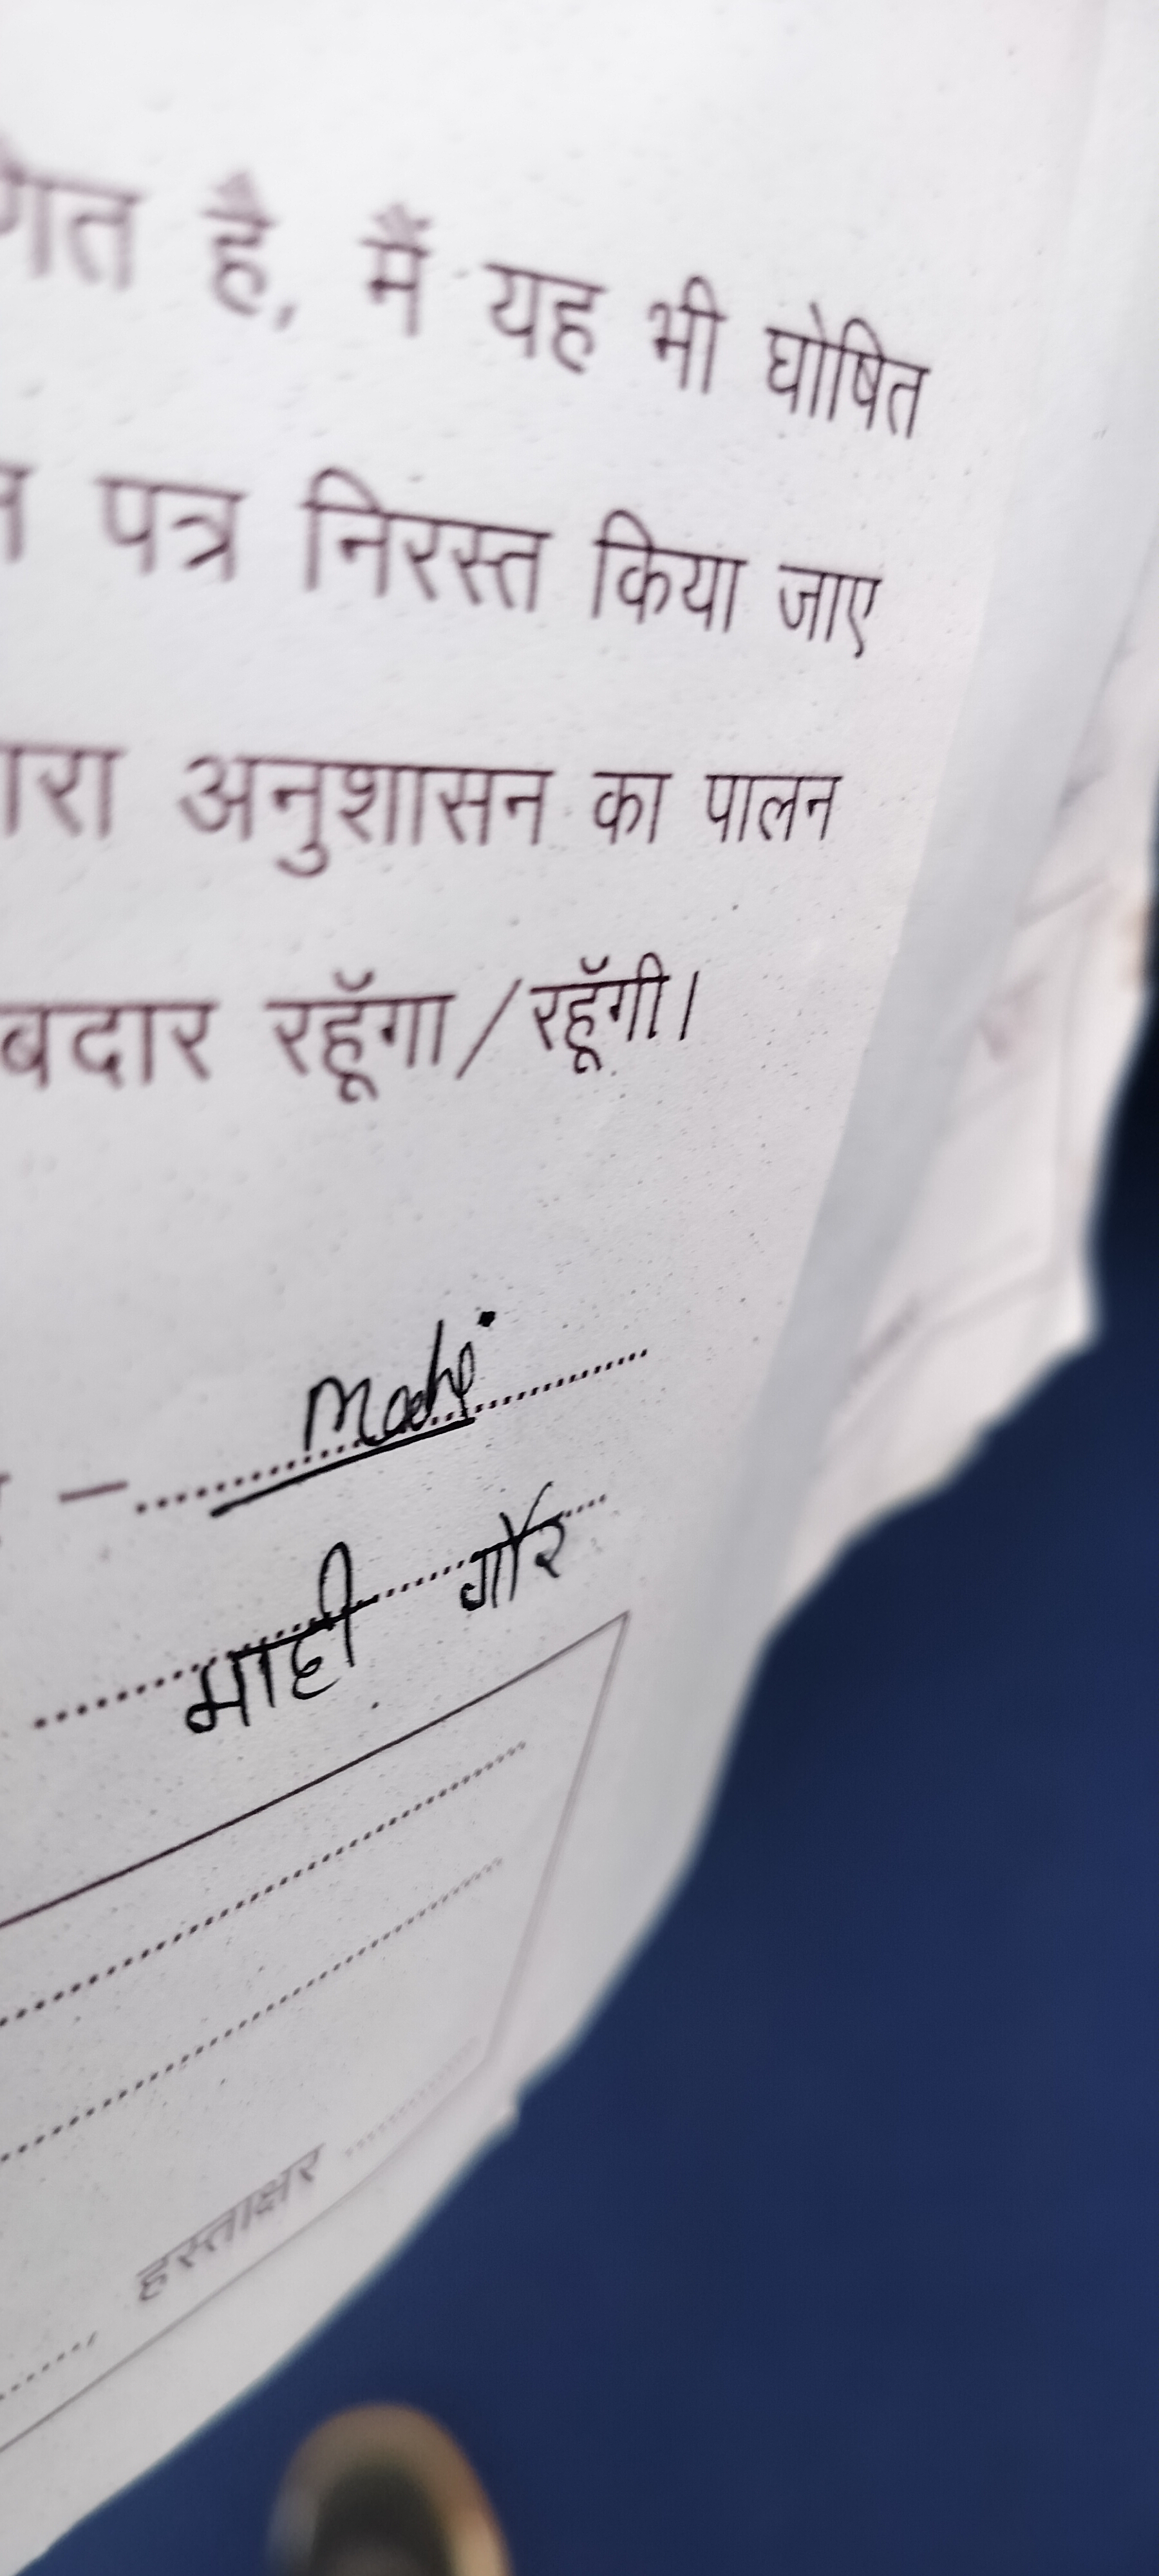 है, मैं यह भी घोषित
पत्र निरस्त किया जाए
अनुशासन का पालन
रहूॅगा/रहूॅगी।
– Mahi
माही गौर
हस्ताक्षर